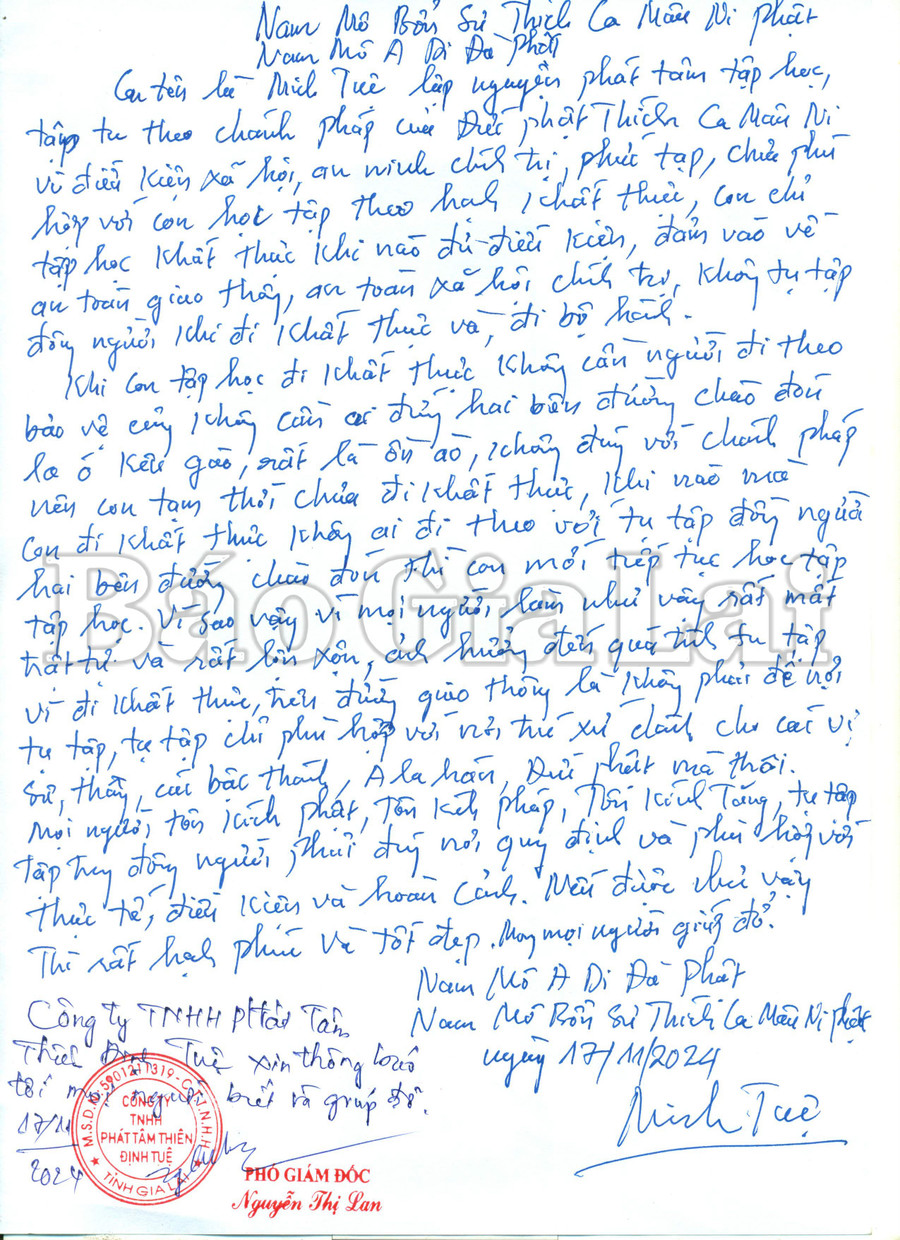 Nam Mô Bổn Sư Thích Ca Mâu Ni Phật
Nam Mô A Di Đà Phật
Con tên là Minh Tuệ lập nguyện phát tâm tập học,
tập tu theo chánh pháp của Đức phật Thích Ca Mâu Ni
vì điều kiện xã hội, an ninh chính trị, phức tạp, chưa phù
hợp với con học tập theo hạnh khất thực, con chỉ
tập học khất thực khi nào đủ điều kiện, đảm vảo về
an toàn giao thông, an toàn xã hội chính trị, không tụ tập
đông người khi đi khất thực và, đi bộ hành.
Khi con tập học đi khất thực không cần người đi theo
bảo vệ cũng không cần ai đứng hai bên đường chào đón
la ó kêu gào, rất là ồn ào, không đúng với chánh pháp
nên con tạm thời chưa đi khất thực, khi nào mà
con đi khất thực không ai đi theo với tụ tập đông người
hai bên đường chào đón thì con mới tiếp tục học tập
tập học. Vì sao vậy vì mọi người làm như vậy rất mất
trật tự và rất lộn xộn, ảnh hưởng đến quá tình tu tập
vì đi khất thực, trên đường giao thông là không phải để nơi
tụ tập, tụ tập chỉ phù hợp với nơi trú xứ dành cho các vị
Sư, thầy, các bậc thánh, A la hán, Đức phật mà thôi.
Mọi người tôn kính phật, Tôn kính pháp, Tôn kính Tăng, tụ tập
tập trung đông người phải đúng nơi quy định và phù hợp với
thực tế, điều kiện và hoàn cảnh. Nếu được như vậy
Thì rất hạnh phúc và tốt đẹp. Mong mọi người giúp đỡ.
Nam Mô A Di Đà Phật
Nam Mô Bổn Sư Thích Ca Mâu Ni phật
ngày 17/11/2024
Minh Tuệ
Công ty TNHH Phát Tâm
Thiền Định Tuệ xin thông báo
tới mọi người biết và giúp đỡ.
17/11
2024
M.S.D.N: 5901211319 - C.T.T.N.H.H
CÔNG TY
TNHH
PHÁT TÂM THIỀN
ĐỊNH TUỆ
TỈNH GIA LAI
PHÓ GIÁM ĐỐC
Nguyễn Thị Lan
Báo Gia Lai